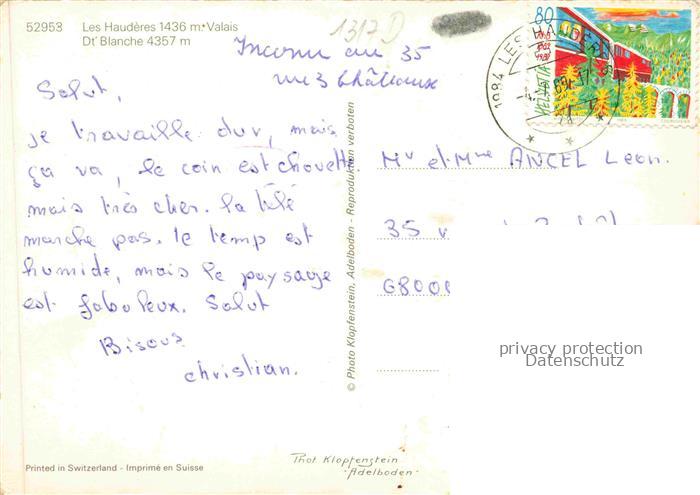 52953 Les Haudères 1436 m. Valais
Dt' Blanche 4357 m
1317D
Inconnu au 35
rue 3 Châteaux
80
HELVETIA
1984 LES HAUDERES
Salut,
je travaille dur, mais
ça va, le coin est chouette
mais très cher. la télé
marche pas. le temp est
humide, mais le paysage
est fabuleux. Salut
Bisous
christian.
© Photo Klopfenstein, Adelboden - Reproduktion verboten
Mr et Mme ANCEL Leon.
35
6800
privacy protection
Datenschutz
Printed in Switzerland - Imprimé en Suisse
Phot. Klopfenstein
·Adelboden·